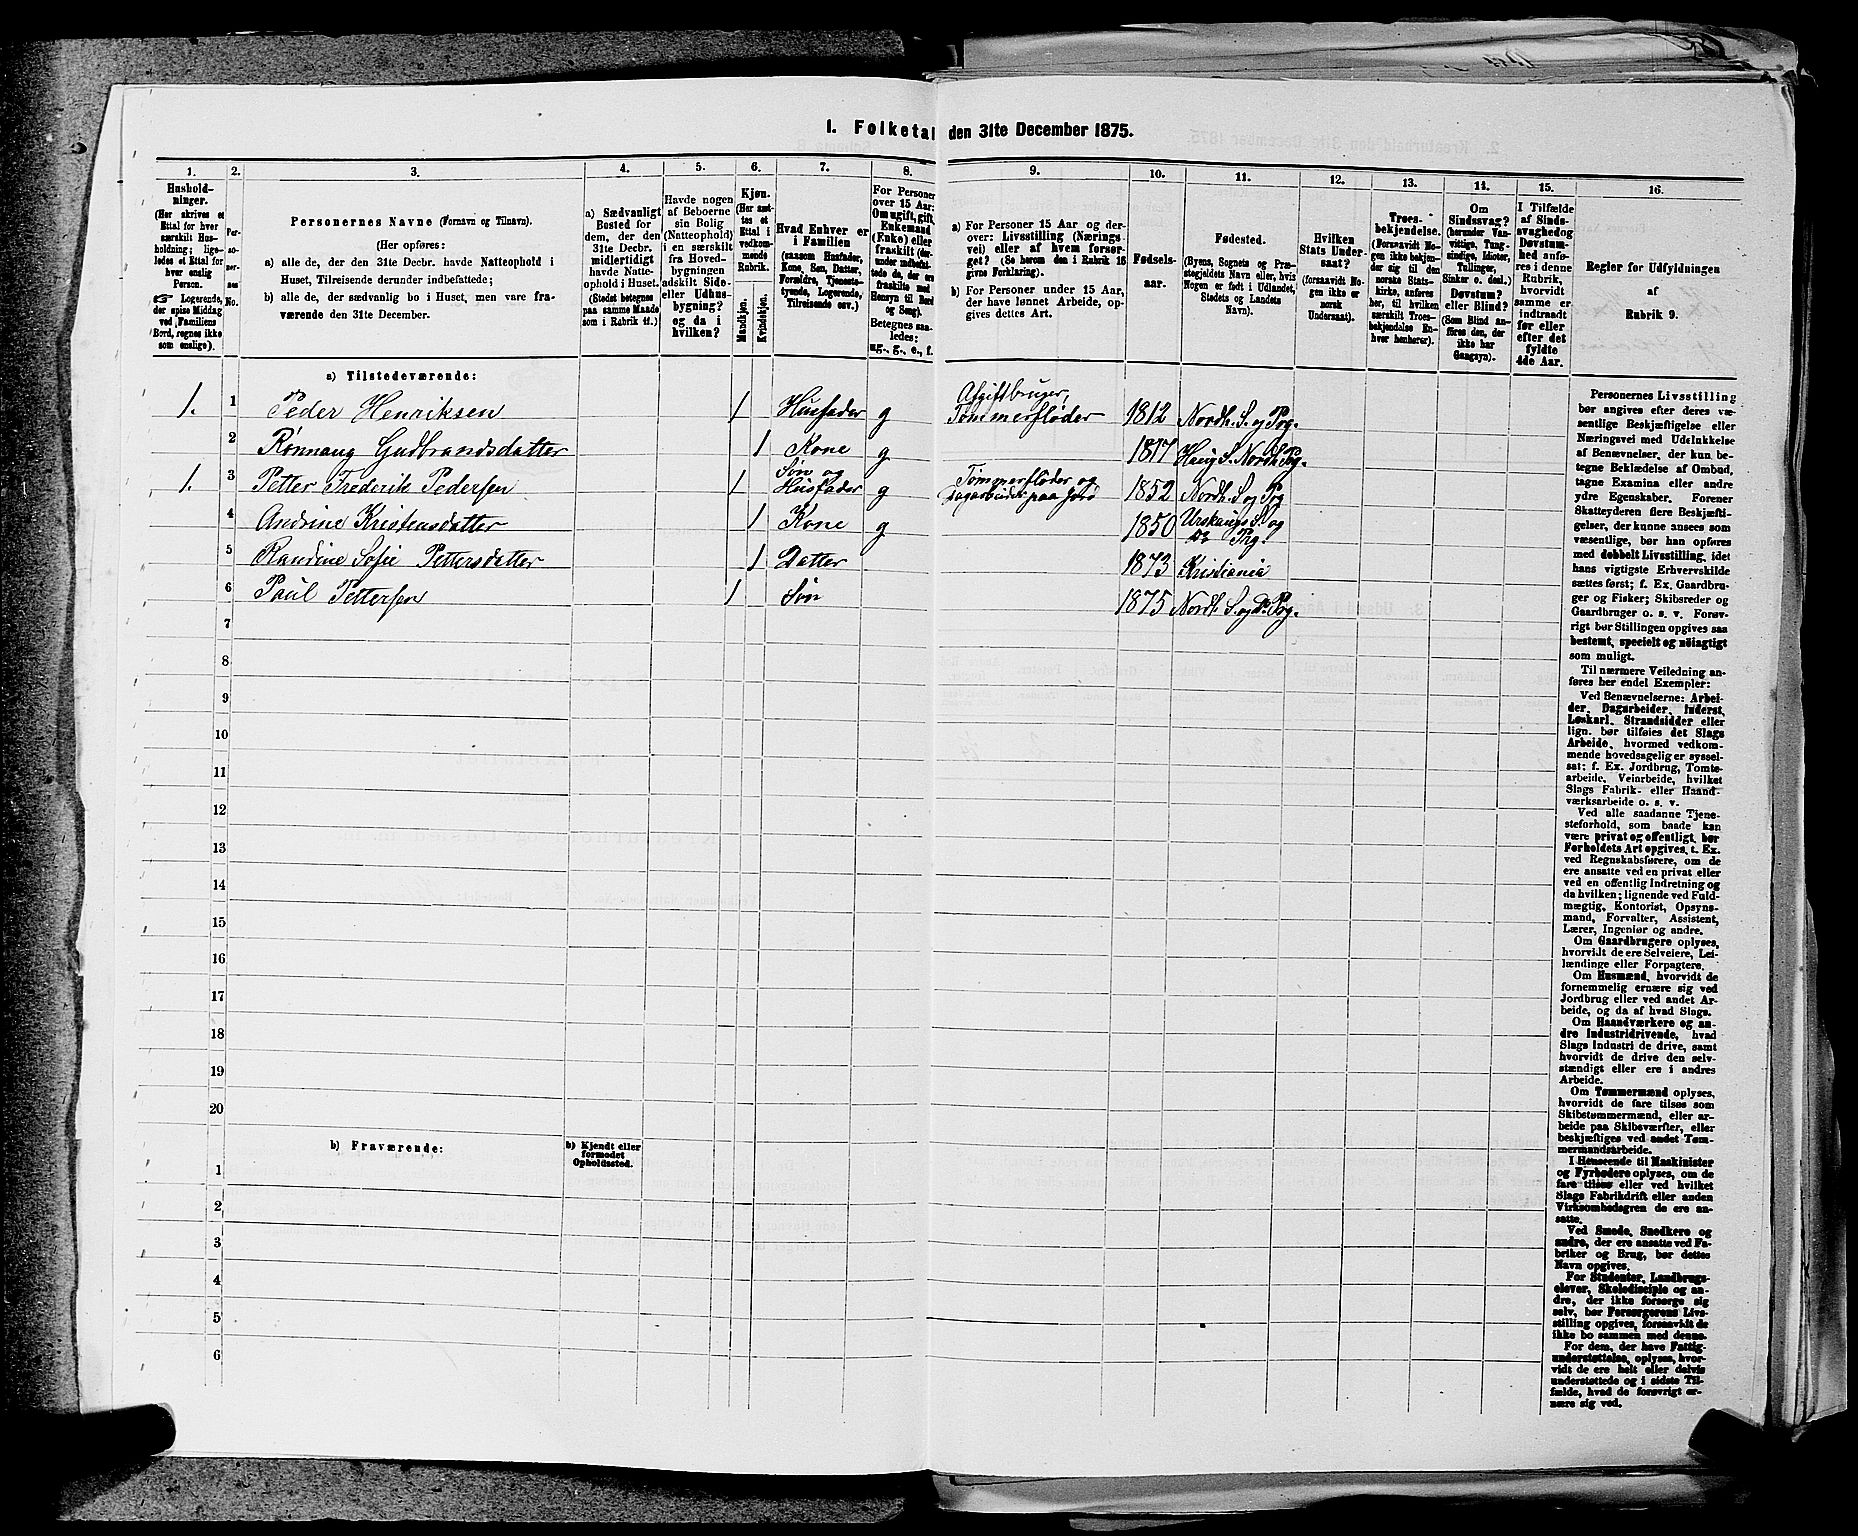 I. Folketal den 31te December 1875.
1.
Husholdninger.
(Her skrives et
Ettal for hver
særskilt Husholdning; ligeledes
et Ettal for
hver enslig
Person.
Logerende,
der spise Middag
ved Familiens
Bord, regnes ikke
som enslige).
2.
Personernes
No.
3.
Personernes Navne (Fornavn og Tilnavn).
(Her opføres:
a) alle de, der den 31te Decbr. havde Natteophold i
Huset, Tilreisende derunder indbefattede;
b) alle de, der sædvanlig bo i Huset, men vare fraværende
den 31te December.
4.
a) Sædvanligt
Bosted for
dem, der den
31te Decbr.
midlertidigt
havde Natteophold
i Huset.
(Stedet betegnes
paa samme Maade
som i Rubrik 11.)
5.
Havde nogen
af Beboerne
sin Bolig
(Natteophold)
i en særskilt
fra Hovedbygningen
adskilt Side-
eller Udhusbygning?
og da i
hvilken?
6.
Kjøn.
(Her sættes
et
Ettal i
vedkommende
Rubrik.
Mandkjøn.
Kvindekjøn.
7.
Hvad Enhver er
i Familien
(saasom Husfader,
Kone, Søn, Datter,
Forældre, Tjenestetyende,
Logerende,
Tilreisende osv.)
8.
For Personer
over 15 Aar:
Om ugift, gift,
Enkemand
(Enke) eller
fraskilt (derunder
indbefattede
de, der ere
fraskilte med
Hensyn til Bord
og Seng).
Betegnes saaledes:
ug., g., e., f.
9.
a) For Personer 15 Aar og derover:
Livsstilling (Næringsvei)
eller af hvem forsørget?
(Se herom den i Rubrik 16
givne Forklaring).
b) For Personer under 15 Aar,
der have lønnet Arbeide, opgives
dettes Art.
10.
Fødselsaar.
11.
Fødested.
(Byens, Sognets og Præstegjeldets
Navn eller, hvis
Nogen er født i Udlandet,
Stedets og Landets
Navn).
12.
Hvilken
Stats Undersaat?
(forsaavidt Nogen
ikke er
norsk
Undersaat).
13.
Troesbekjendelse.
(Forsaavidt Nogen
ikke bekjender
sig til den
norske Statskirke,
anføres
her, til hvilken
særskilt Troesbekjendelse
Enhver
henhører).
14.
Om
Sindssvag?
(herunder Vanvittige,
Tungsindige,
Idioter,
Tullinger,
Sinker o. desl.)
Døvstum?
eller Blind?
(Som Blind anføres
den, der
ikke har
Gangsyn).
15.
I Tilfælde
af Sindssvaghed
og
Døvstumhed
anføres
i denne
Rubrik,
hvorvidt
samme er
indtraadt
før eller
efter det
fyldte
4de Aar.
16.
Regler for Udfyldningen
af
Rubrik 9.
a) Tilstedeværende:
1. 1 Peder Henriksen 1 Husfader g Afgiftbruger, Tømmerfløder 1812 Nordh. S. og Prg.
2 Rønnaug Gudbrandsdatter 1 Kone g 1817 Haug S. Nordh. Prg.
1. 3 Petter Frederik Pedersen 1 Søn og Husfader g Tømmerfløder og dagarbeider paa Jord 1852 Nordh. S. og Prg
4 Andrine Kristensdatter 1 Kone g 1850 Urskaugs S. og Do Prg.
5 Randine Sofie Pettersdatter 1 Datter 1873 Kristiania
6 Paul Pettersen 1 Søn 1875 Nordh. S. og Do Prg.
7
8
9
10
11
12
13
14
15
16
17
18
19
20
b) Fraværende:
b) Kjendt eller
formodet
Opholdssted.
1
2
3
4
5
6
Personernes Livsstilling
bør angives efter deres væsentlige
Beskjæftigelse eller
Næringsvei med Udelukkelse
af Benævnelser, der kun betegne
Beklædelse af Ombud,
tagne Examina eller andre
ydre Egenskaber. Forener
Skatteyderen flere Beskjæftigelser,
der kunne ansees som
væsentlige, bør han opføres
med dobbelt Livsstilling, idet
hans vigtigste Erhvervskilde
sættes først; f. Ex. Gaardbruger
og Fisker; Skibsreder og
Gaardbruger o. s. v. Forøvrigt
bør Stillingen opgives saa
bestemt, specielt og nöiagtigt
som muligt.
Til nærmere Veiledning anføres
her endel Exempler:
Ved Benævnelserne: Arbeider,
Dagarbeider, Inderst,
Løskarl, Strandsidder eller
lign. bør tilføies det Slags
Arbeide, hvormed vedkommende
hovedsagelig er sysselsat;
f. Ex. Jordbrug, Tomtearbeide,
Veiarbeide, hvilket
Slags Fabrik- eller Haandværksarbeide
o. s. v.
Ved alle saadanne Tjenesteforhold,
som baade kan
være privat og offentligt, bør
Forholdets Art opgives, t. Ex.
ved Regnskabsførere, om de
ere ansatte ved en privat eller
ved en offentlig Indretning og
da hvilken; lignende ved Fuldmægtig,
Kontorist, Opsynsmand,
Forvalter, Assistent,
Lærer, Ingeniør og andre.
Om Gaardbrugere oplyses,
hvorvidt de ere Selveiere, Leilændinge
eller Forpagtere.
Om Husmænd, hvorvidt de
fornemmelig ernære sig ved
Jordbrug eller ved andet Arbeide,
og da af hvad Slags.
Om Haandværkere og andre
Industridrivende, hvad
Slags Industri de drive, samt
hvorvidt de drive den selvstændigt
eller ere i andres
Arbeide.
Om Tømmermænd oplyses,
hvorvidt de fare tilsøs som
Skibstømmermænd, eller arbeide
paa Skibsværfter, eller
beskjæftiges ved andet Tømmermandsarbeide.
I Henseende til Maskinister
og Fyrbødere oplyses, om de
fare tilsøs eller ved hvilket
Slags Fabrikdrift eller anden
Virksomhedsgren de ere ansatte.
Ved Smede, Snedkere og
andre, der ere ansatte ved Fabriker
og Brug, bør dettes
Navn opgives.
For Studenter, Landbrugselever,
Skoledisciple og andre,
der ikke forsørge sig
selv, bør Forsørgerens Livsstilling
opgives, forsaavidt de
ikke bo sammen med denne.
For dem, der have Fattigunderstøttelse,
oplyses, hvorvidt
de ere helt eller delvis
understøttede og i sidste Tilfælde,
hvad de forøvrigt ernære
sig ved.